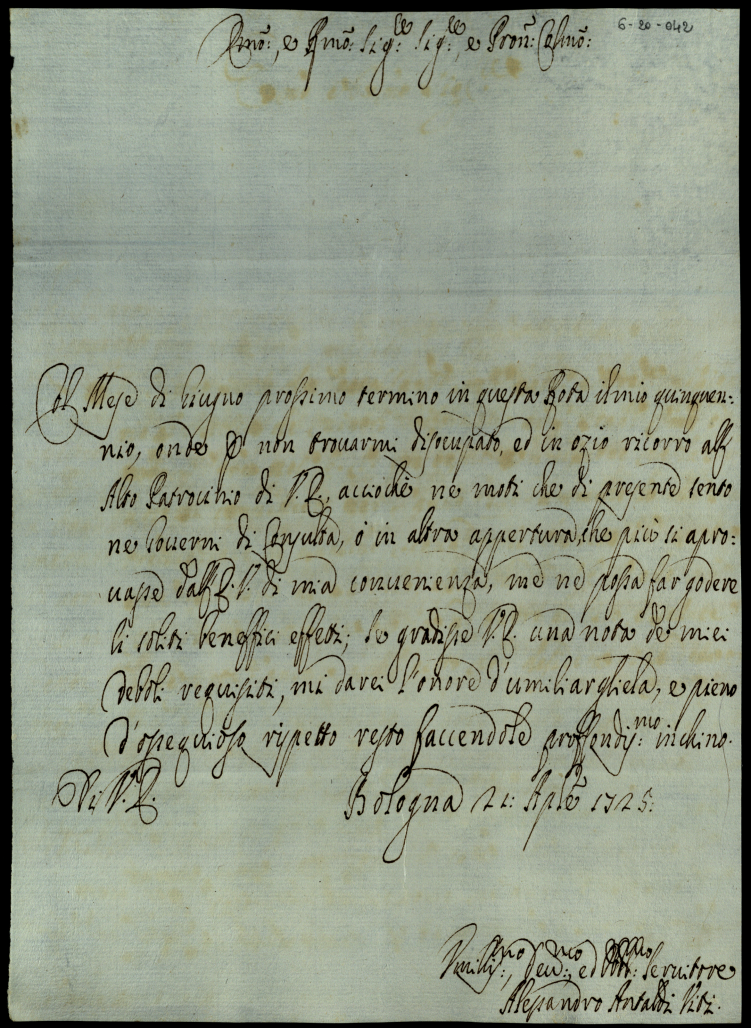 6-20-042
Emō:, e Rmō: Sig:re Sig:re, e Pron: Colmō:
Col Mese di Giugno prossimo termino in questa Rota il mio quinquen:
nio, onde p non trovarmi disocupato, ed in ozio ricorro all'
Alto Patrocinio di V.E., acciochè ne moti che di presente sento
ne Governi di Consulta, ò in altra appertura, che più si apro:
vasse dall'E.V. di mia convenienza, me ne possa far godere
li soliti beneffici effetti; Se gradisse V.E. una nota de miei
deboli requisiti, mi darei l'onore d'umiliargliela, e pieno
d'ossequioso rispetto resto faccendole proffondis:mo inchino.
Di V.E.
Bologna 21: Aple 1725:
Umilis:mo, Dev:mo, ed Obb:mo Servitore
Alessandro Antaldi Viti.